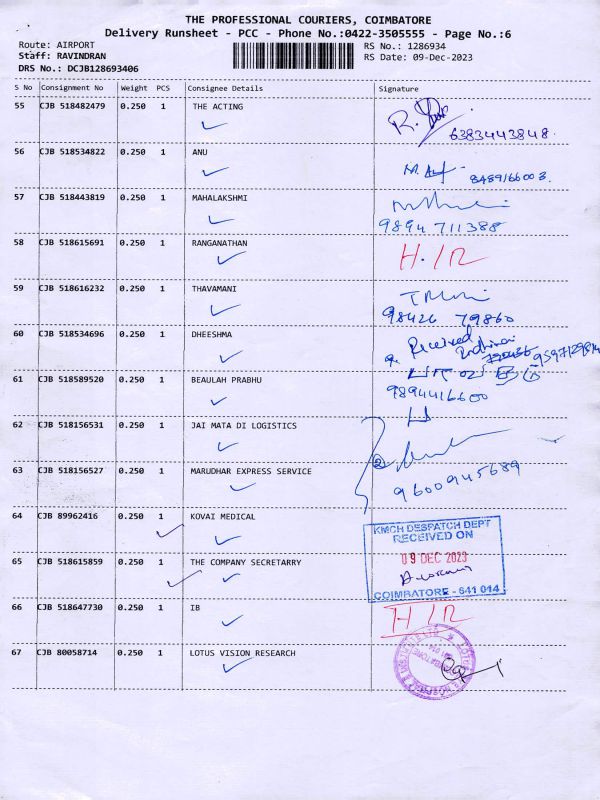 THE PROFESSIONAL COURIERS, COIMBATORE
Delivery Runsheet - PCC - Phone No.:0422-3505555 - Page No.:6
Route: AIRPORT RS No.: 1286934
Staff: RAVINDRAN RS Date: 09-Dec-2023
DRS No.: DCJB128693406
S No Consignment No Weight PCS Consignee Details Signature
55 CJB 518482479 0.250 1 THE ACTING
6383443848
56 CJB 518534822 0.250 1 ANU
8489166003
57 CJB 518443819 0.250 1 MAHALAKSHMI
9894711388
58 CJB 518615691 0.250 1 RANGANATHAN H/R
59 CJB 518616232 0.250 1 THAVAMANI
98426 79860
60 CJB 518534696 0.250 1 DHEESHMA Received
61 CJB 518589520 0.250 1 BEAULAH PRABHU
9894416600
62 CJB 518156531 0.250 1 JAI MATA DI LOGISTICS
63 CJB 518156527 0.250 1 MARUDHAR EXPRESS SERVICE
9600945689
64 CJB 89962416 0.250 1 KOVAI MEDICAL
KMCH DESPATCH DEPT
RECEIVED ON
09 DEC 2023
65 CJB 518615859 0.250 1 THE COMPANY SECRETARRY
COIMBATORE - 641 014
66 CJB 518647730 0.250 1 IB H/R
67 CJB 80058714 0.250 1 LOTUS VISION RESEARCH